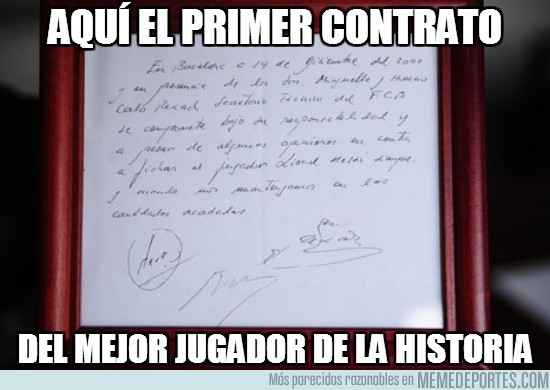 AQUÍ EL PRIMER CONTRATO
En Barcelona a 14 de Diciembre del 2000
y en presencia de los Srs. Minguella y Horacio
Carlos Rexach Secretario Técnico del F.C.B
se compromete bajo su responsabilidad y
a pesar de algunas opiniones en contra
a fichar al jugador Lionel Messi siempre
y cuando nos mantengamos en las
cantidades acordadas
DEL MEJOR JUGADOR DE LA HISTORIA
Más parecidos razonables en MEMEDEPORTES.COM